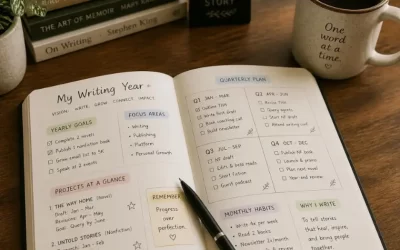 THE ART OF MEMOIR Mary Karr
On Writing Stephen King
STORY
One
word
at a
time.
My Writing Year
VISION. WRITE. GROW. CONNECT. IMPACT.
YEARLY GOALS
Complete 2 novels
Publish 1 nonfiction book
Grow email list to 5K
Speak at 2 events
FOCUS AREAS
Writing
Publishing
Platform
Personal Growth
PROJECTS AT A GLANCE
1. THE WAY HOME (Novel)
Draft: Jan - Mar
Revisions: Apr - May
Goal: Query by June
2. UNTOLD STORIES (Nonfiction)
REMEMBER
Progress
over
perfection.
QUARTERLY PLAN
Q1 JAN - MAR
Outline Novel
Write first draft
Build newsletter
Q2 APR - JUN
Query agents
Start NF draft
Attend writing conf
Q3 JUL - SEP
NF draft
Edits & beta reads
Short fiction
Guest podcast
Q4 OCT - DEC
Launch & promo
Plan next novel
Year end review
MONTHLY HABITS
Write 4x per week
Read 2 books
Newsletter 2x/month
WHY I WRITE
To tell stories
that heal, inspire,
and bring people
together.